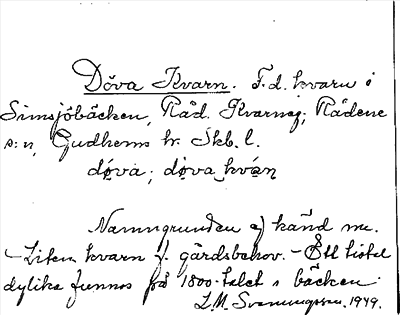 Döva Kvarn. F.d. kvarn i
Simsjöbäcken, Råd. Kvarneg; Rådene
s:n, Gudhems hr. Skb. l.
dø̄va; dø̄va kván
Namngrunden ej känd nu.
- Liten kvarn f. gårdsbehov. - Ett
dylika funnos på 1800-talet i bäcken.
L.M. Svenungsson. 1949.